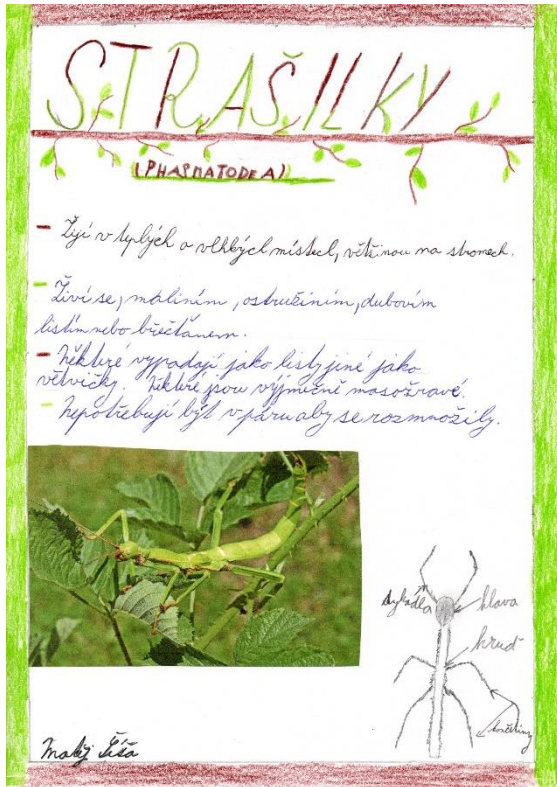 STRAŠILKY
(PHASMATODEA)
- Žijí v teplých a vlhkých místech, většinou na stromech.
- Živí se, maliním, ostružiním, dubovím
listím nebo břečťanem.
- Některé vypadají jako listy jiné jako
větvičky. Některé jsou výjmečně masožravé.
- Nepotřebují být v páru aby se rozmnožily.
tykadla
hlava
hruď
končetiny
Matěj Šíša